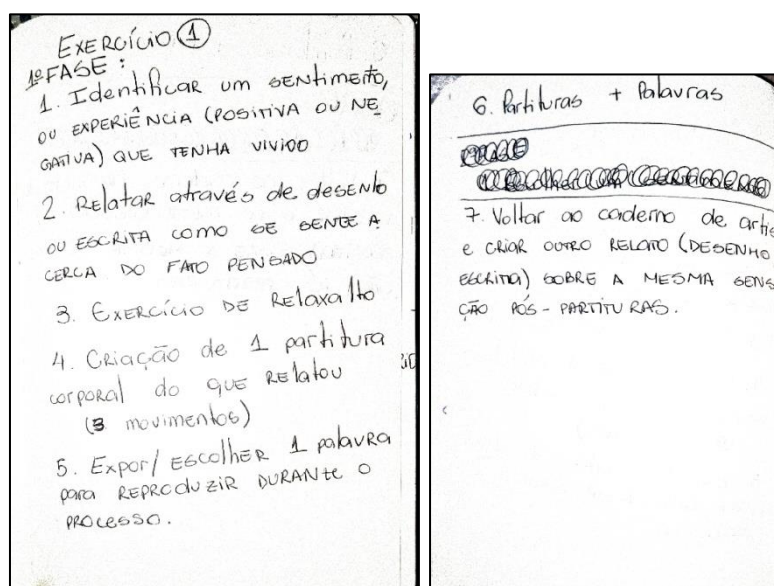 EXERCÍCIO 1
1ª FASE:
1. Identificar um sentimento,
ou experiência (positiva ou ne
gativa) que tenha vivido
2. Relatar através de desenho
ou escrita como se sente a
cerca do fato pensado
3. Exercício de Relaxa/to
4. Criação de 1 partitura
corporal do que relatou
(3 movimentos)
5. Expor/Escolher 1 palavra
para reproduzir durante o
processo.
6. Partituras + Palavras
7. Voltar ao caderno de artis
e criar outro relato (desenho
escrita) sobre a mesma sens
ção pós-partituras.